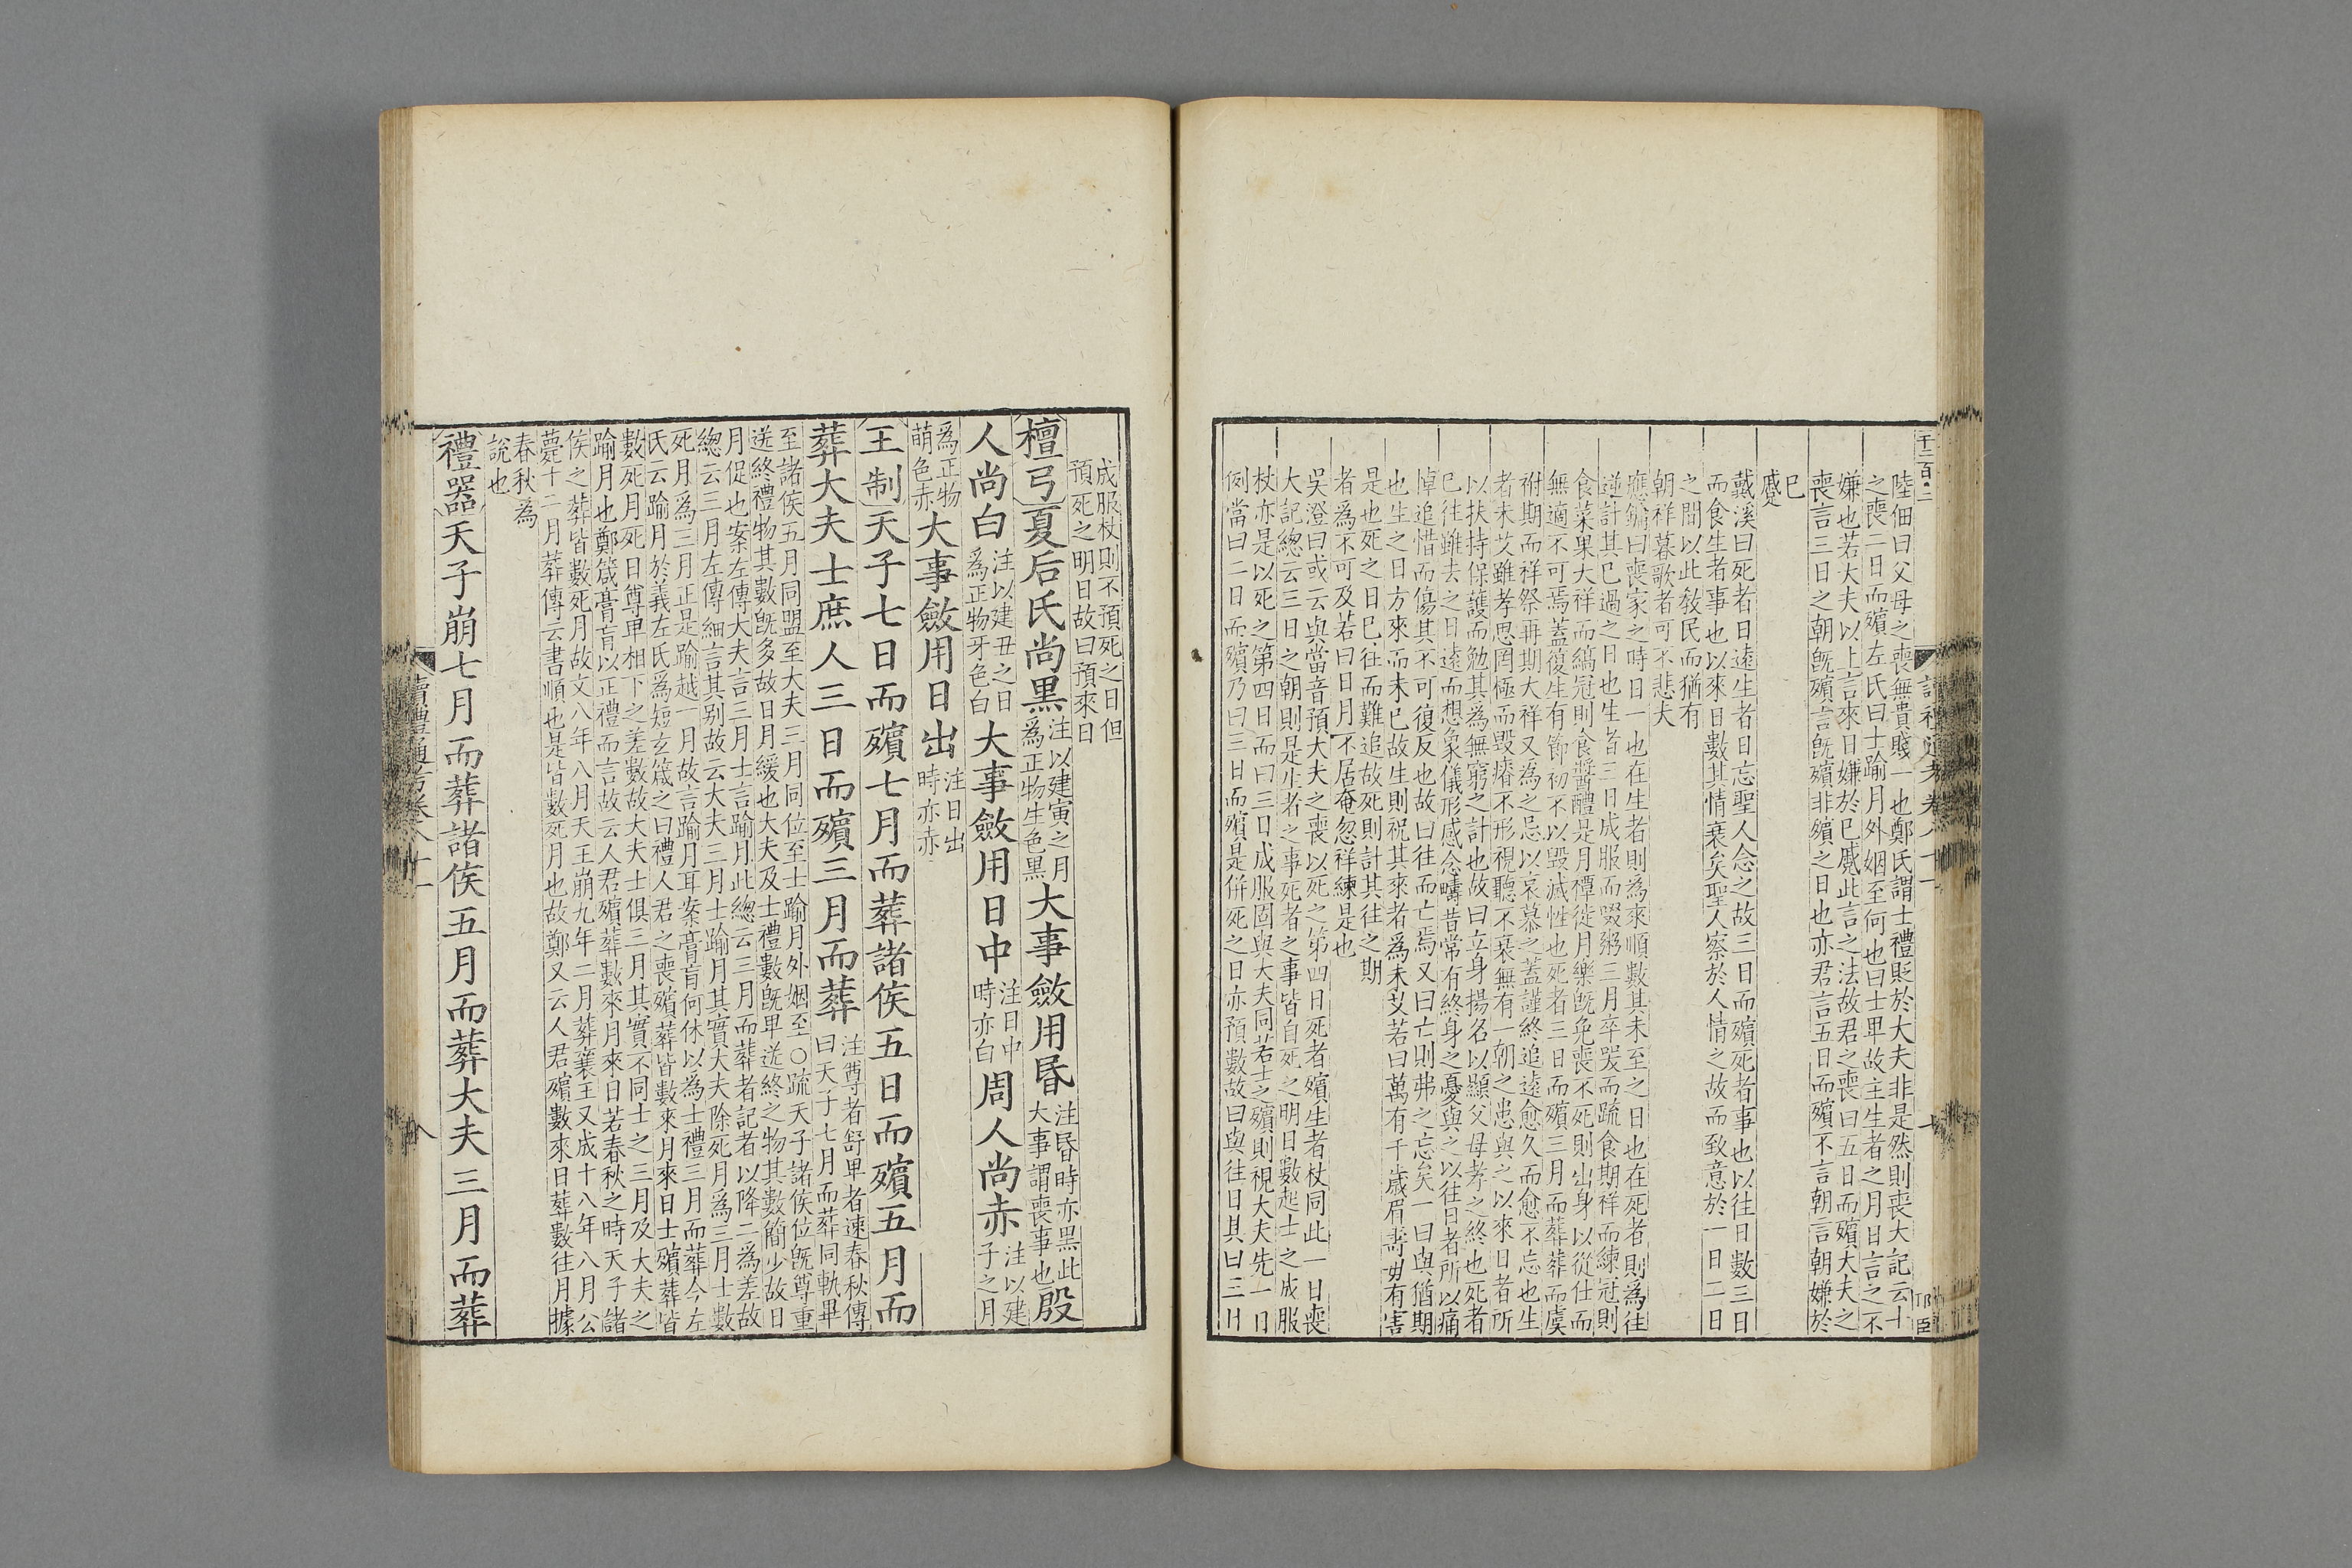 陸佃曰父母之喪無貴賤一也鄭氏謂士禮貶於大夫非是然則喪大記云士
之喪二日而殯左氏曰士踰月外姻至何也曰士卑故主生者之月日言之不
嫌也若大夫以上言來日嫌於已慼此言之法故君之喪曰五日而殯大夫之
喪言三日之朝旣殯言旣殯非殯之日也亦君言五日而殯不言朝言朝嫌於
已
慼
戴溪曰死者日遠生者日忘聖人念之故三日而殯死者事也以往日數三日
而食生者事也以來日數其情衰矣聖人察於人情之故而致意於一日二日
之間以此敎民而猶有
朝祥暮歌者可不悲夫
應鏞曰喪家之時日一也在生者則為來順數其未至之日也在死者則為往
逆計其已過之日也生者三日成服而啜粥三月卒哭而疏食期祥而練冠則
食菜果大祥而縞冠則食醬醴是月禫徙月樂旣免喪不死則出身以從仕而
無適不可焉蓋復生有節初不以毀滅性也死者三日而殯三月而葬葬而虞
祔期而祥祭再期大祥又為之忌以哀慕之蓋謹終追遠愈久而愈不忘也生
者未艾雖孝思罔極而毀瘠不形視聽不衰無有一朝之患與之以來日者所
以扶持保護而勉其為無窮之計也故曰立身揚名以顯父母孝之終也死者
已往雖去之日遠而想象儀形感念疇昔常有終身之憂與之以往日者所以痛
悼追惜而傷其不可復反也故曰往而亡焉又曰亡則弗之忘矣一曰與猶期
也生之日方來而未已故生則祝其來者為未艾若曰萬有千歲眉壽毋有害
是也死之日已往而難追故死則計其往之期
者為不可及若曰日月不居奄忽祥練是也
吳澄曰或云與當音預大夫之喪以死之第四日死者殯生者杖同此一日喪
大記總云三日之朝則是生者之事死者之事皆自死之明日數起士之成服
杖亦是以死之第四日而曰三日成服固與大夫同若士之殯則視大夫先一日
例當曰二日而殯乃曰三日而殯是併死之日亦預數故曰與往日其曰三日
成服杖則不預死之日但
預死之明日故曰預來日
檀弓夏后氏尚黑注以建寅之月為正物生色黑大事斂用昏注昏時亦黑此大事謂喪事也殷
人尚白注以建丑之日為正物牙色白大事斂用日中注日中時亦白周人尚赤注以建子之月
為正物萌色赤大事斂用日出注日出時亦赤
王制天子七日而殯七月而葬諸侯五日而殯五月而
葬大夫士庶人三日而殯三月而葬注尊者舒卑者速春秋傳曰天子七月而葬同軌畢
至諸侯五月同盟至大夫三月同位至士踰月外姻至○疏天子諸侯位旣尊重
送終禮物其數旣多故日月緩也大夫及士禮數旣卑送終之物其數簡少故日
月促也案左傳大夫言三月士言踰月此總云三月而葬者記者以降二為差故
總云三月左傳細言其別故云大夫三月士踰月其實大夫除死月為三月士數
死月為三月正是踰越一月故言踰月耳案膏肓何休以為士禮三月而葬今左
氏云踰月於義左氏為短玄箴之曰禮人君之喪殯葬皆數來月來日士殯葬皆
數死月死日尊卑相下之差數故大夫士俱三月其實不同士之三月及大夫之
踰月也鄭箴膏肓以正禮而言故云人君殯葬數來月來日若春秋之時天子諸
侯之葬皆數死月故文八年八月天王崩九年二月葬襄王又成十八年八月公
薨十二月葬傳云書順也是皆數死月也故鄭又云人君殯數來日葬數往月據
春秋為
說也
禮器天子崩七月而葬諸侯五月而葬大夫三月而葬